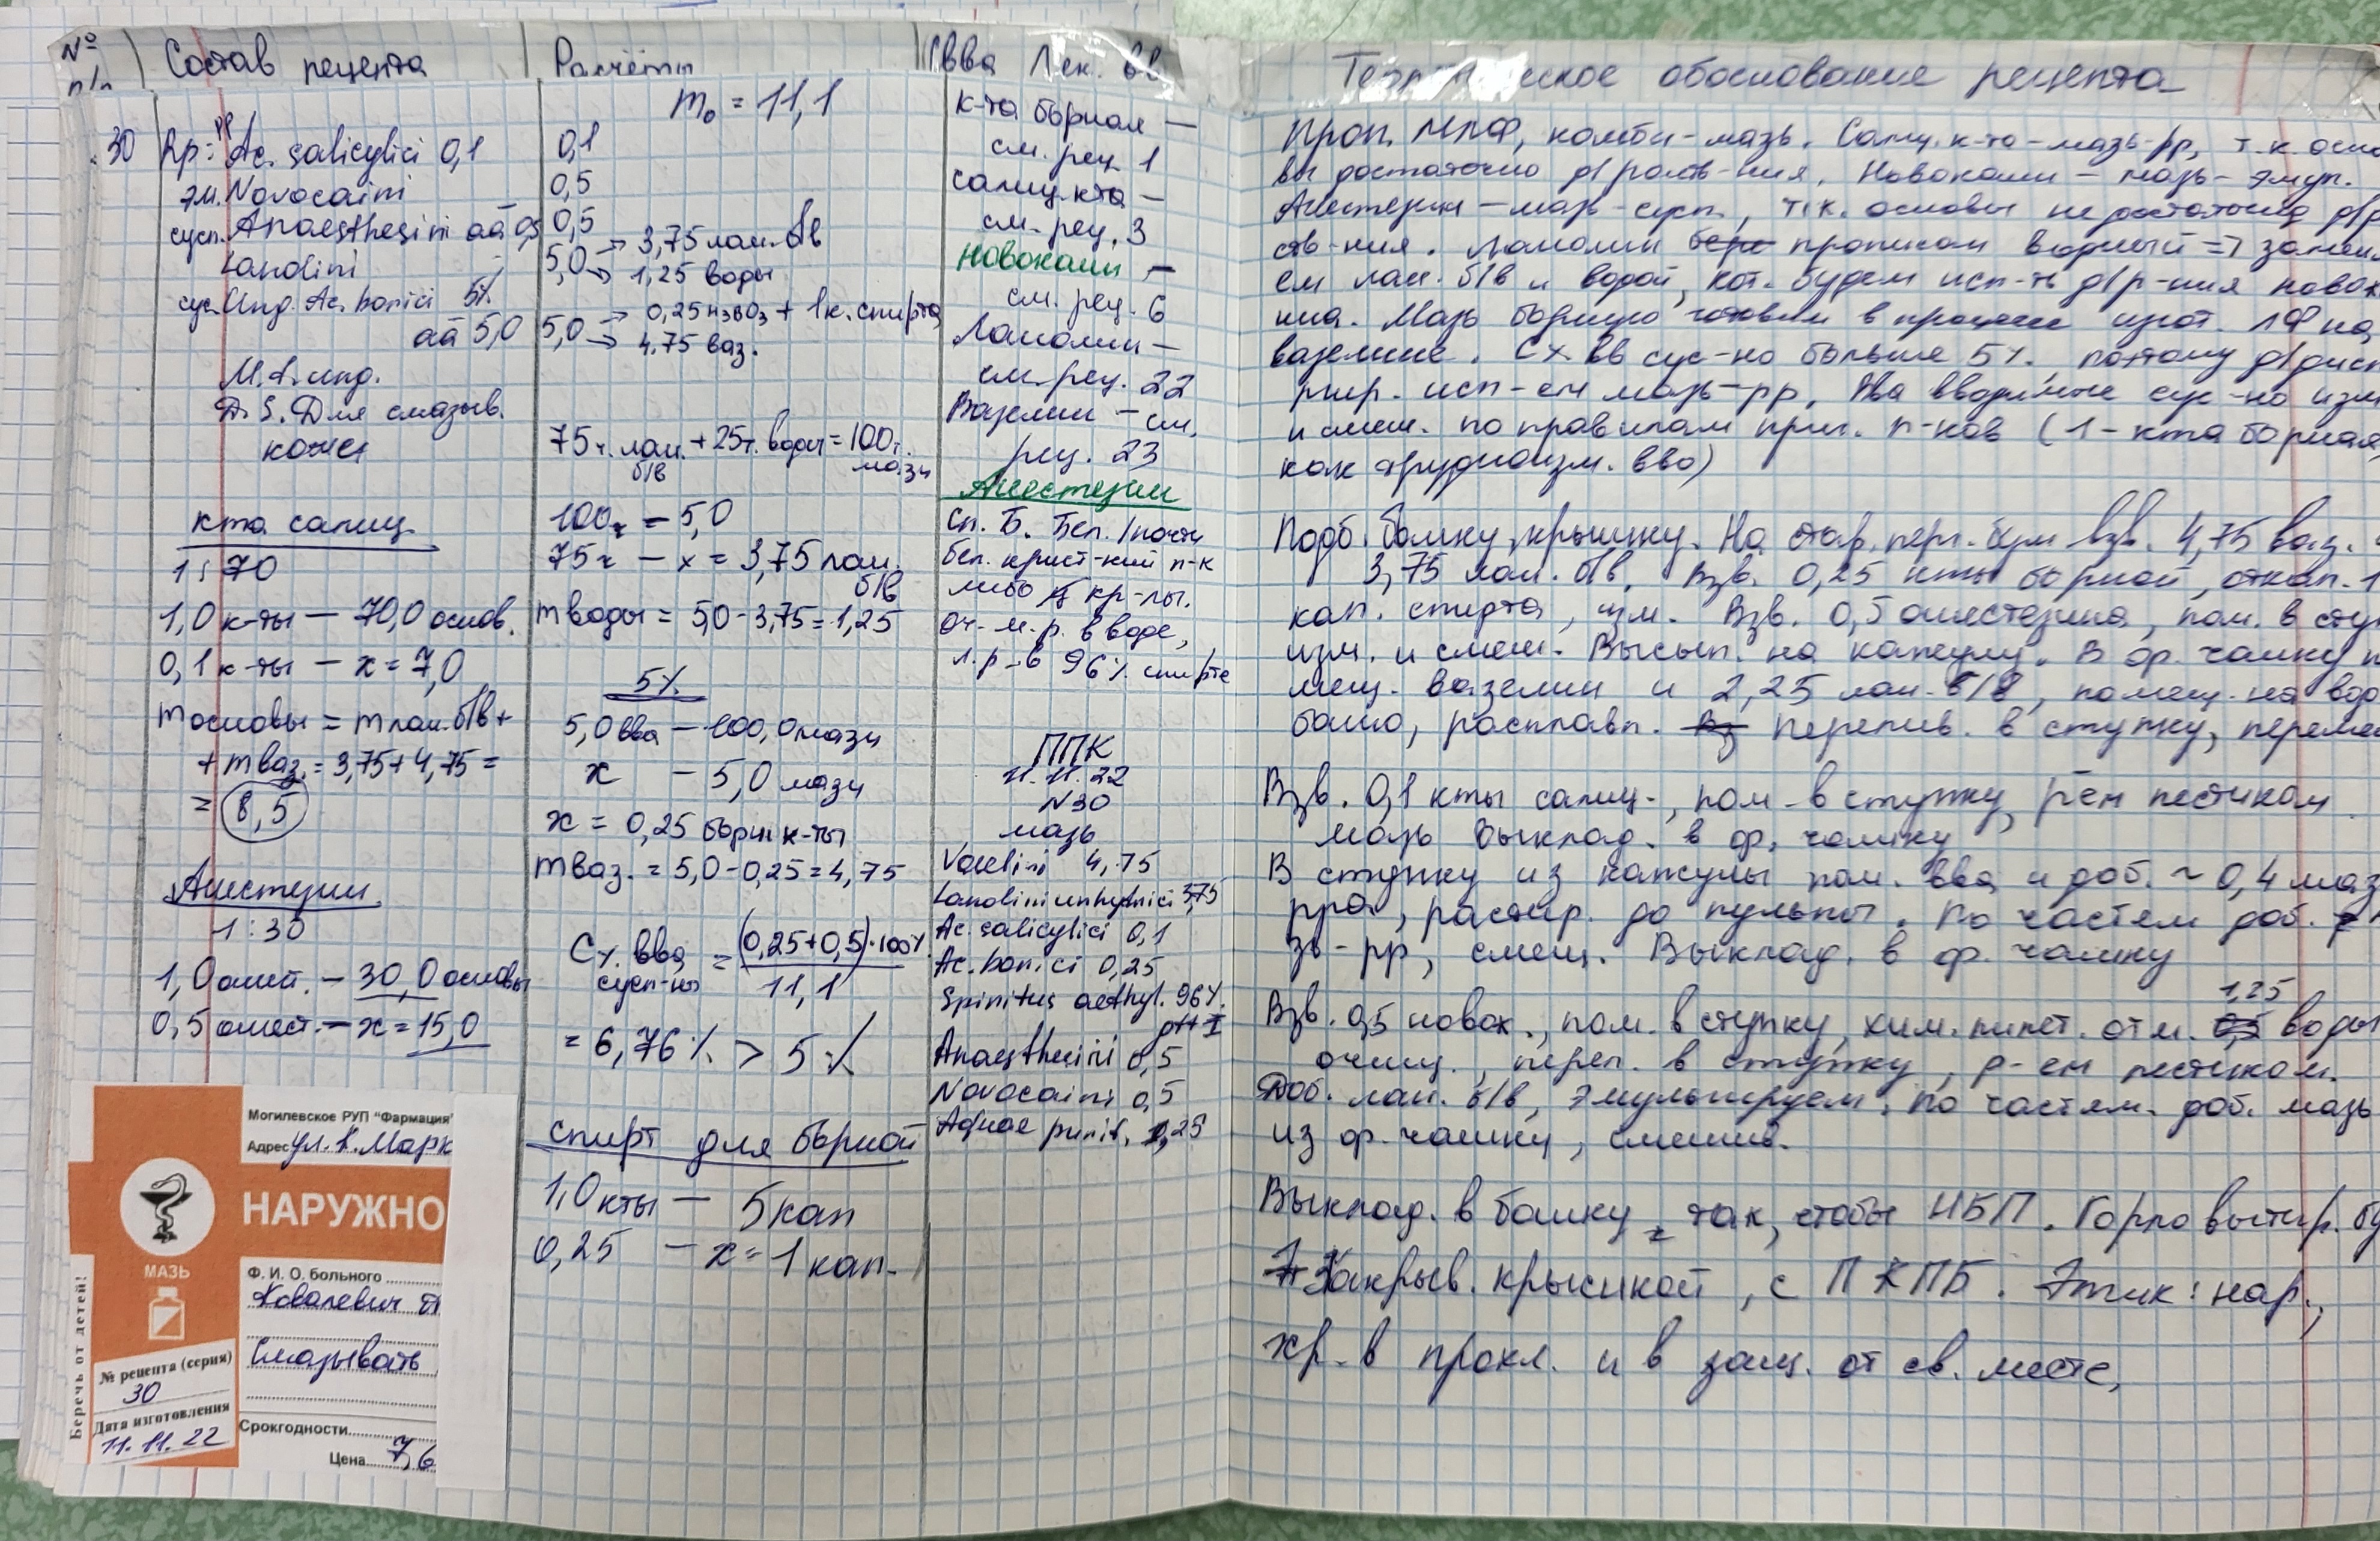 № п/п
Состав рецепта
Расчёты
Свва Лек. вв
30 Rp: Ac. salicylici 0,1
рр
эм. Novocaini
сусп. Anaesthesini aa 0,5
Lanolini
сус. Ung. Ac. borici 5%
aa 5,0
M.f. ung.
D.S. Для смазыв.
кожи
кта салиц.
1:70
1,0 к-ты — 70,0 основ.
0,1 к-ты — x = 7,0
m основы = m лан. б/в +
+ m ваз. = 3,75 + 4,75 =
= 8,5
Анестезин
1:30
1,0 анест. — 30,0 основы
0,5 анест. — x = 15,0
Могилевское РУП "Фармация"
Адрес ул. К. Марк
НАРУЖНО
МАЗЬ
Беречь от детей!
Ф. И. О. больного
Ковалевич
Смазывать
№ рецепта (серия)
30
Дата изготовления
11.11.22
Срокгодности
Цена 7,6
m₀ = 11,1
0,1
0,5
0,5
5,0 → 3,75 лан. б/в
→ 1,25 воды
5,0 → 0,25 H₃BO₃ + 1к. спирта
→ 4,75 ваз.
75ч. лан. б/в + 25ч. воды = 100ч. мази
100ч — 5,0
75ч — x = 3,75 лан. б/в
m воды = 5,0 - 3,75 = 1,25
5%
5,0 вва — 100,0 мази
x — 5,0 мази
x = 0,25 борн к-ты
m ваз. = 5,0 - 0,25 = 4,75
C% вва сусп-ны = (0,25+0,5)·100% / 11,1
= 6,76% > 5%
спирт для борной
1,0 кты — 5 кап
0,25 — x = 1 кап.
к-та борная —
см. рец. 1
салиц. кта —
см. рец. 3
Новокаин —
см. рец. 6
Ланолин —
см. рец. 22
Вазелин — см.
рец. 23
Анестезин
Сп. Б. Бел. /почти
бел. крист-кий п-к
либо кр-лы.
Оч. м. р. в воде,
л. р. в 96% спирте
ППК
11.11.22
N30
мазь
Vaselini 4,75
Lanolini anhydrici 3,75
Ac. salicylici 0,1
Ac. borici 0,25
Spiritus aethyl. 96%
gtt I
Anaesthesini 0,5
Novocaini 0,5
Aquae purif. 1,25
Теоретическое обоснование рецепта
Проп. МЛФ, комби-мазь. Салиц. к-та - мазь-рр, т.к. осно
вы достаточно д/раств-ния. Новокаин - мазь-эмул.
Анестезин - мазь-сусп., т.к. основы недостаточно д/р
ств-ния. Ланолин прописан водный => заменя
ем лан. б/в и водой, кот. будем исп-ть д/р-ния новок
ина. Мазь борную готовим в процессе изгот. ЛФ на
вазелине. C% вв сус-но больше 5%, поэтому д/дисп
ргир. исп-ем мазь-рр. Вва вводимые сус-но изм
и смеш. по правилам приг. п-ков (1-кта борная
как трудноизм. вво)
Подб. банку, крышку. На стар. перг. бум взв. 4,75 ваз.
3,75 лан. б/в. Взв. 0,25 кты борной, откап. 1
кап. спирта, изм. Взв. 0,5 анестезина, пом. в сту
изм. и смеш. Высып. на капсулу. В фр. чашку п
мещ. вазелин и 2,25 лан. б/в, помещ. на вод
баню, расплавл. перелив. в ступку, переме
Взв. 0,1 кты салиц., пом. в ступку, рем пестиком
мазь выклад. в ф. чашку
В ступку из капсулы пом. вва и доб. ~ 0,4 маз
рра, растир. до пульпы. По частям доб.
зь-рр, смеш. Выклад. в ф. чашку
Взв. 0,5 новок., пом. в ступку, хим. пипет. отм. 1,25 воды
очищ., переп. в ступку, р-ем пестиком.
Доб. лан. б/в, эмульгируем. По частям. доб. мазь
из ф. чашки, смешив.
Выклад. в банку так, чтобы НБП. Горло вытир. бу
Закрыв. крышкой, с ПКПБ. Этик: нар.,
хр. в прохл. и в защ. от св. месте,